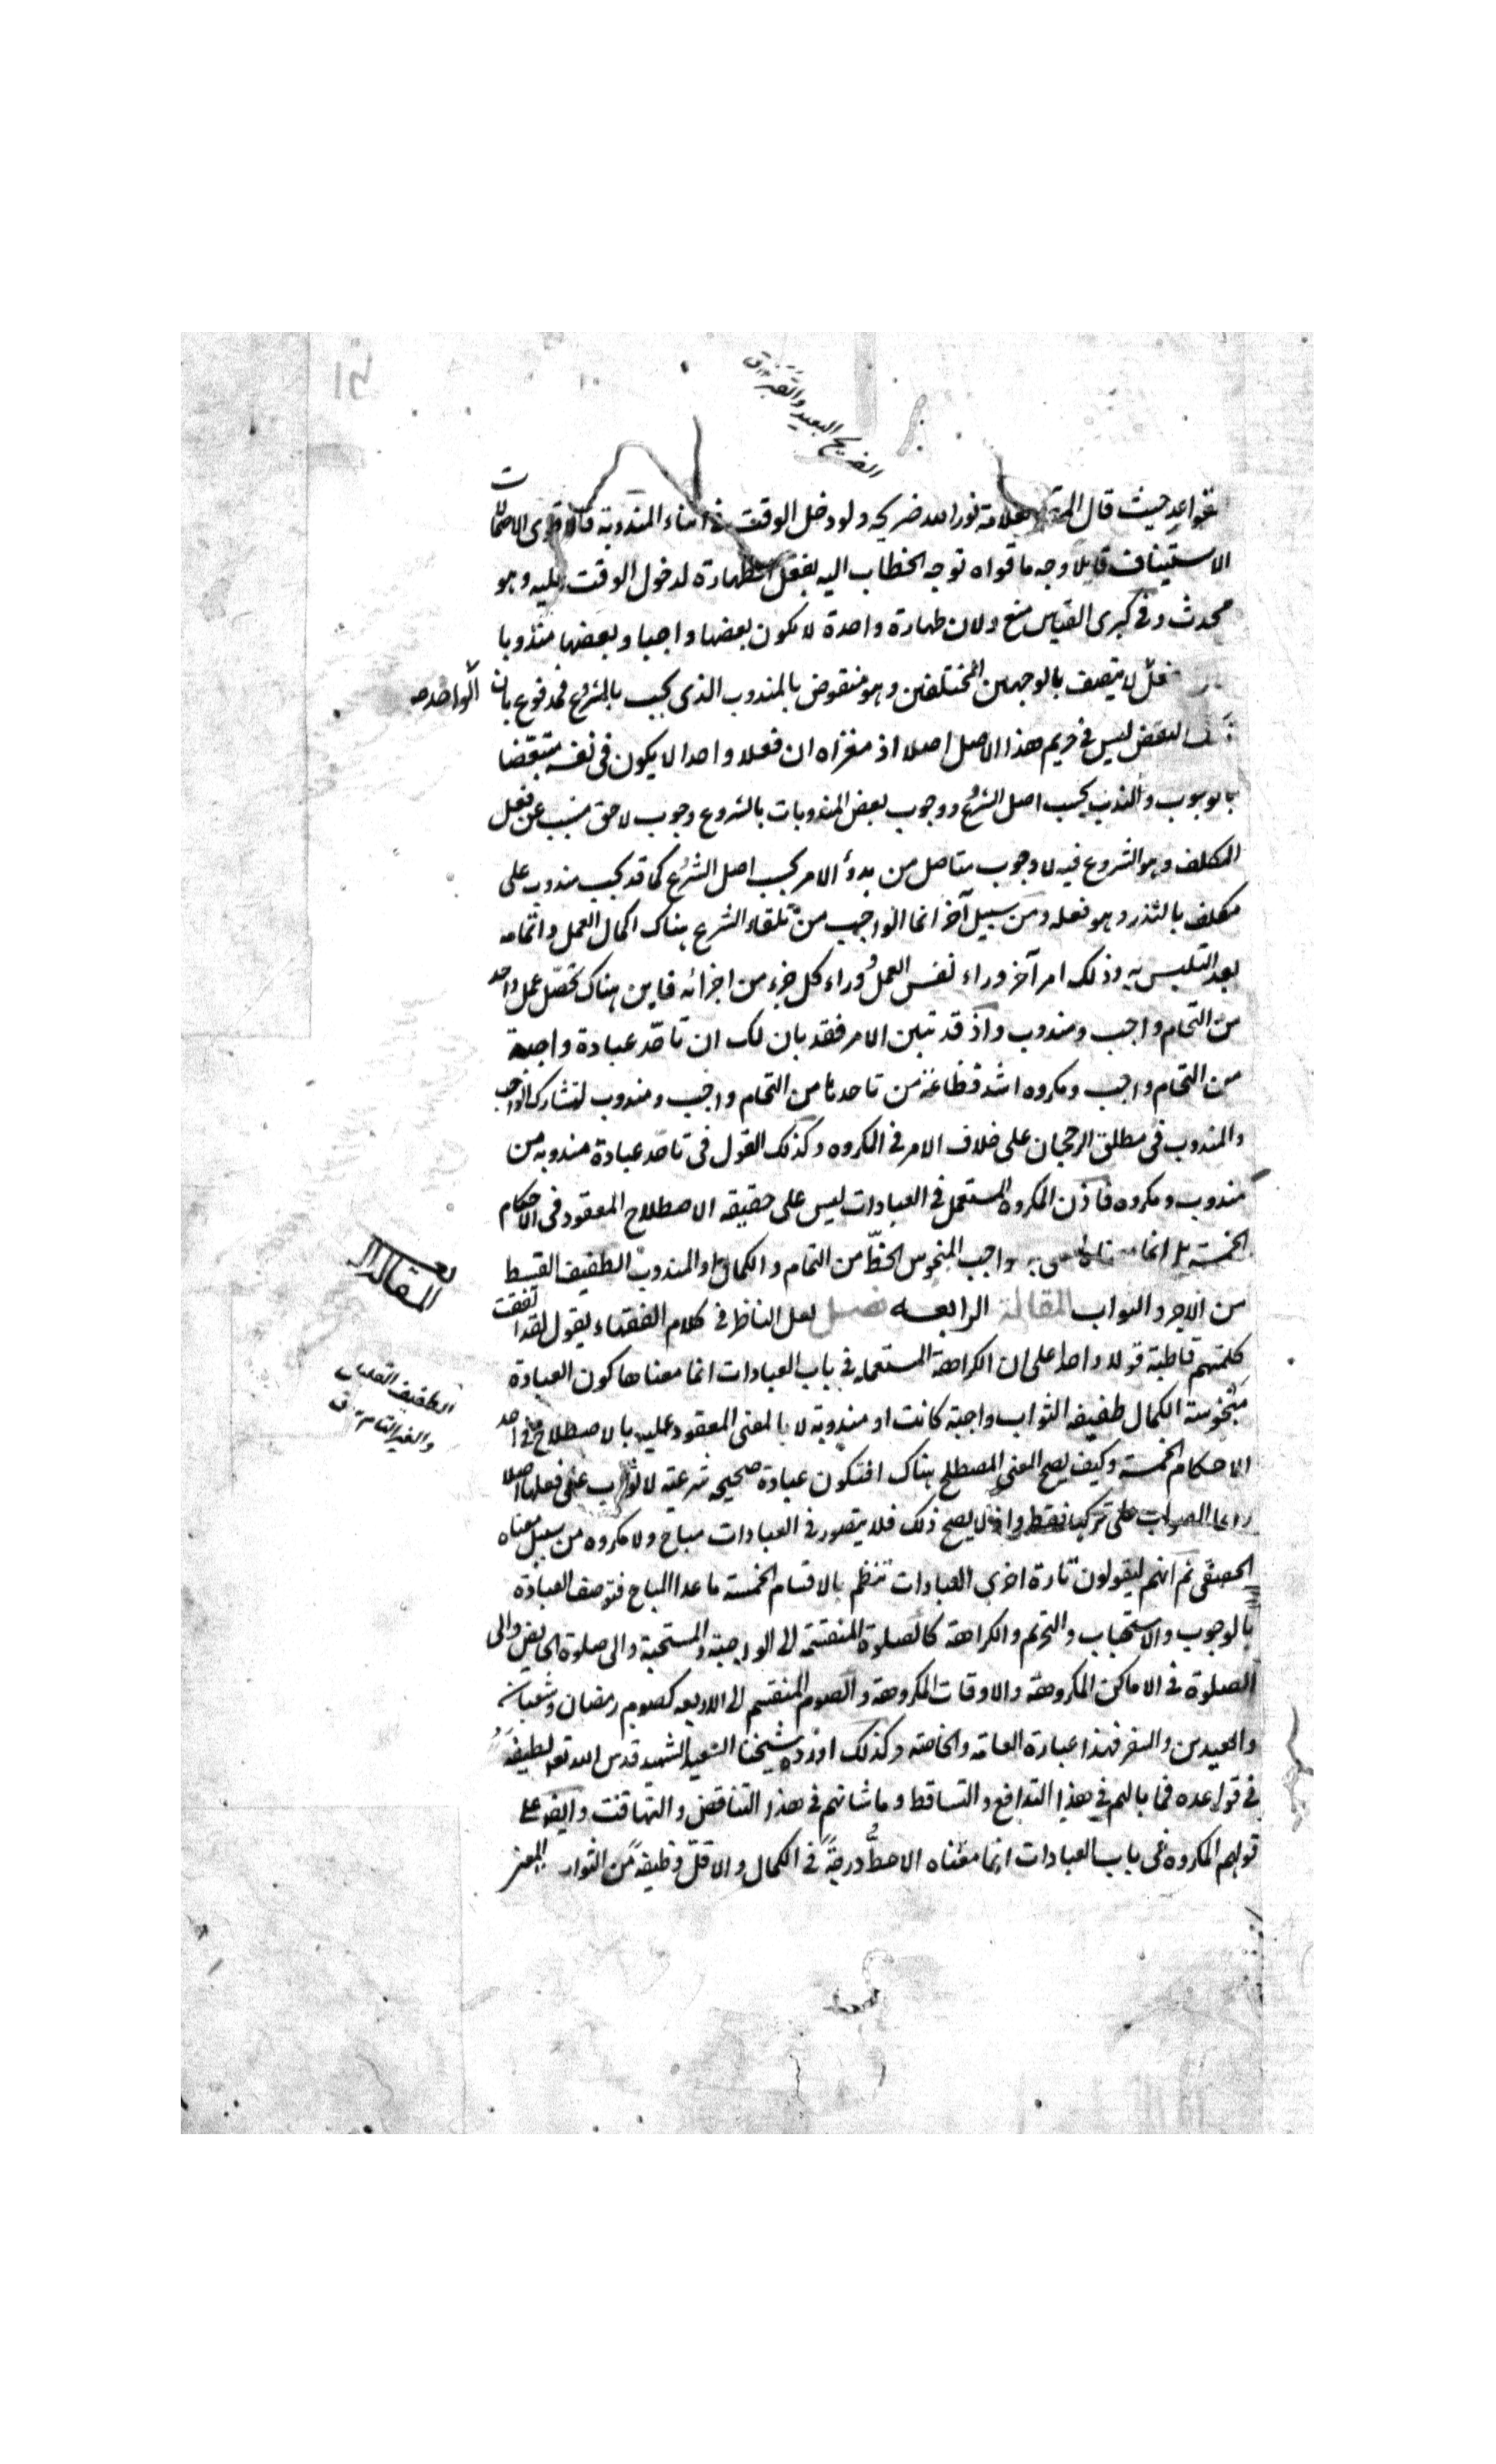 الضريح البعيد والقبر ق
القواعد حيث قال العلامة نور الله ضريحه ولو دخل الوقت في اثناء المندوبة فاقوى الاحتمالات
الاستيناف قايلا وجه ما قواه توجه الخطاب اليه بفعل الطهارة لدخول الوقت عليه وهو
محدث وفي كبرى القياس منع ولان طهارة واحدة لا يكون بعضها واجبا وبعضها مندوبا
لا يتصف بالوجهين المختلفين وهو منقوض بالمندوب الذي يجب بالشروع فمدفوع بان
الواحد صح
النقض ليس في حريم هذا الاصل اصلا اذ مغزاه ان فعلا واحدا لا يكون في نفسه متبعضا
بالوجوب والندب بحسب اصل الشرع ووجوب بعض المندوبات بالشروع وجوب لاحق منسب عن فعل
المكلف وهو الشروع فيه لا وجوب متاصل من بدؤ الامر بحسب اصل الشرع كما قد يجب مندوب على
مكلف بالنذر وهو فعله ومن سبيل آخر انما الواجب من تلقاء الشرع هناك اكمال العمل واتمامه
بعد التلبس به وذلك امر آخر وراء نفس العمل ووراء كل جزء من اجزائه فاين هناك تحصل عمل واحد
من التحام واجب ومندوب واذ قد تبين الامر فقد بان لك ان تاحد عبادة واجبة
من التحام واجب ومكروه اشد فظاعة من تاحدها من التحام واجب ومندوب لتشارك الواجب
والمندوب في مطلق الرجحان على خلاف الامر في المكروه وكذلك القول في تاحد عبادة مندوبه من
مندوب ومكروه فاذن المكروه المستعمل في العبادات ليس على حقيقه الاصطلاح المعقود في الاحكام
الخمسة بل انما واجب المنحوس الحظ من التمام والكمال او المندوب الطفيف القسط
من الاجر والثواب المقالة الرابعه فصل لعل الناظر في كلام الفقهاء يقول لقد اتفقت
المقالة
كلمتهم قاطبة قولا واحدا على ان الكراهة المستعمله في باب العبادات انما معناها كون العبادة
منحوسة الكمال طفيفه الثواب واجبة كانت او مندوبة لا بالمعنى المعقود عليه بالاصطلاح في احد
الطفيف القليل
والغير التام ق
الاحكام الخمسة وكيف يصح المعنى المصطلح هناك افتكون عبادة صحيحه شرعيه لا ثواب على فعلها اصلا
وانما الثواب على تركها فقط واذ لا يصح ذلك فلا يتصور في العبادات مباح ولا مكروه من سبيل معناه
الحقيقي ثم انهم ليقولون تارة اخرى العبادات تنظم بالاقسام الخمسة ما عدا المباح فتوصف العبادة
بالوجوب والاستحباب والتحريم والكراهة كالصلوة المنقسمة الى الواجبة والمستحبة والى صلوة الحايض والى
الصلوة في الاماكن المكروهة والاوقات المكروهة والصوم المنقسم الى الاربعه كصوم رمضان وشعبان
والعيدين والسفر فهذا عبارة العامة والخاصه وكذلك اورده شيخنا السعيد الشهيد قدس الله نفسه اللطيفة
في قواعده فما بالهم في هذا التدافع والتساقط وما شانهم في هذا التناقض والتهافت وايضا على
قولهم المكروه في باب العبادات انما معناه الاحط درجة في الكمال والاقل وظيفة من الثواب